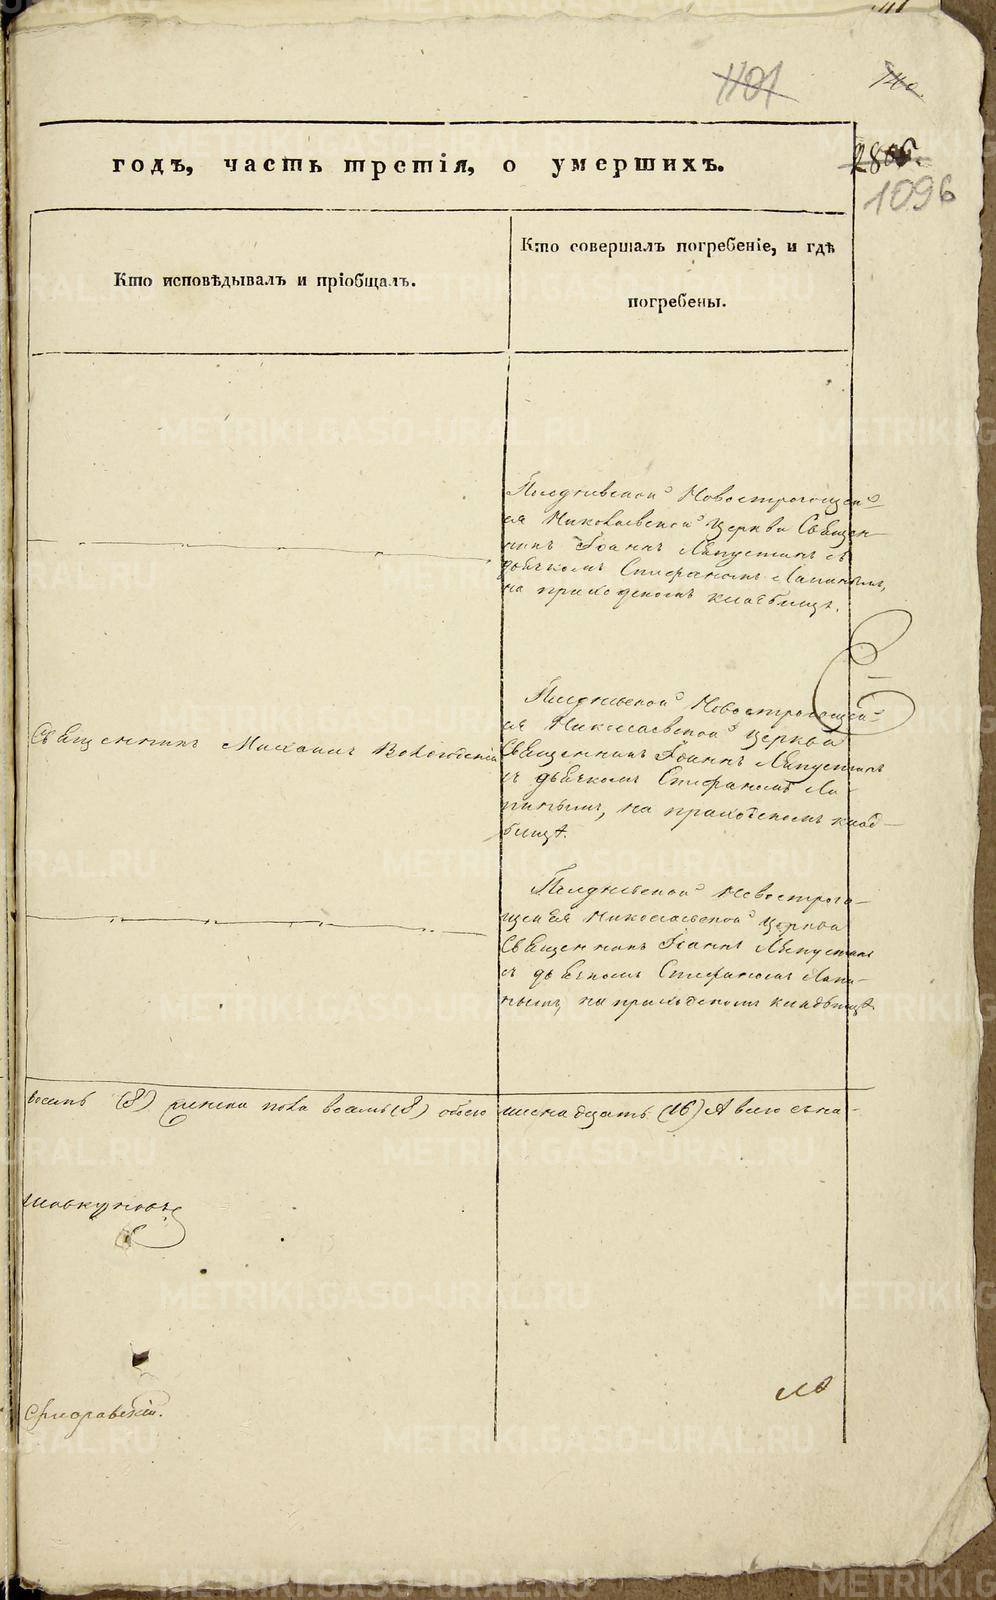 1101
140.
годъ, часть третія, о умершихъ.
1096
Кто исповѣдывалъ и пріобщалъ.
Кто совершалъ погребеніе, и гдѣ
погребены.
Новострогощен-
ся Николаевской церкви Священ-
никъ Іоаннъ Ляпустинъ съ
дьячкомъ Стефаномъ Лапинымъ,
на приходскомъ кладбищѣ.
Священникъ Михаилъ
Новострогощен-
ся Николаевской церкви
Священникъ Іоаннъ Ляпустинъ
съ дьячкомъ Стефаномъ Ла-
пинымъ, на приходскомъ клад-
бищѣ.
Новострого-
щенся Николаевской церкви
Священникъ Іоаннъ Ляпустинъ
съ дьячкомъ Стефаномъ Лапи-
нымъ, на приходскомъ кладбищѣ.
восемь (8) женска пола восемь (8) обоего шеснадцать (16) А всего съ на-
METRIKI.GASO-URAL.RU